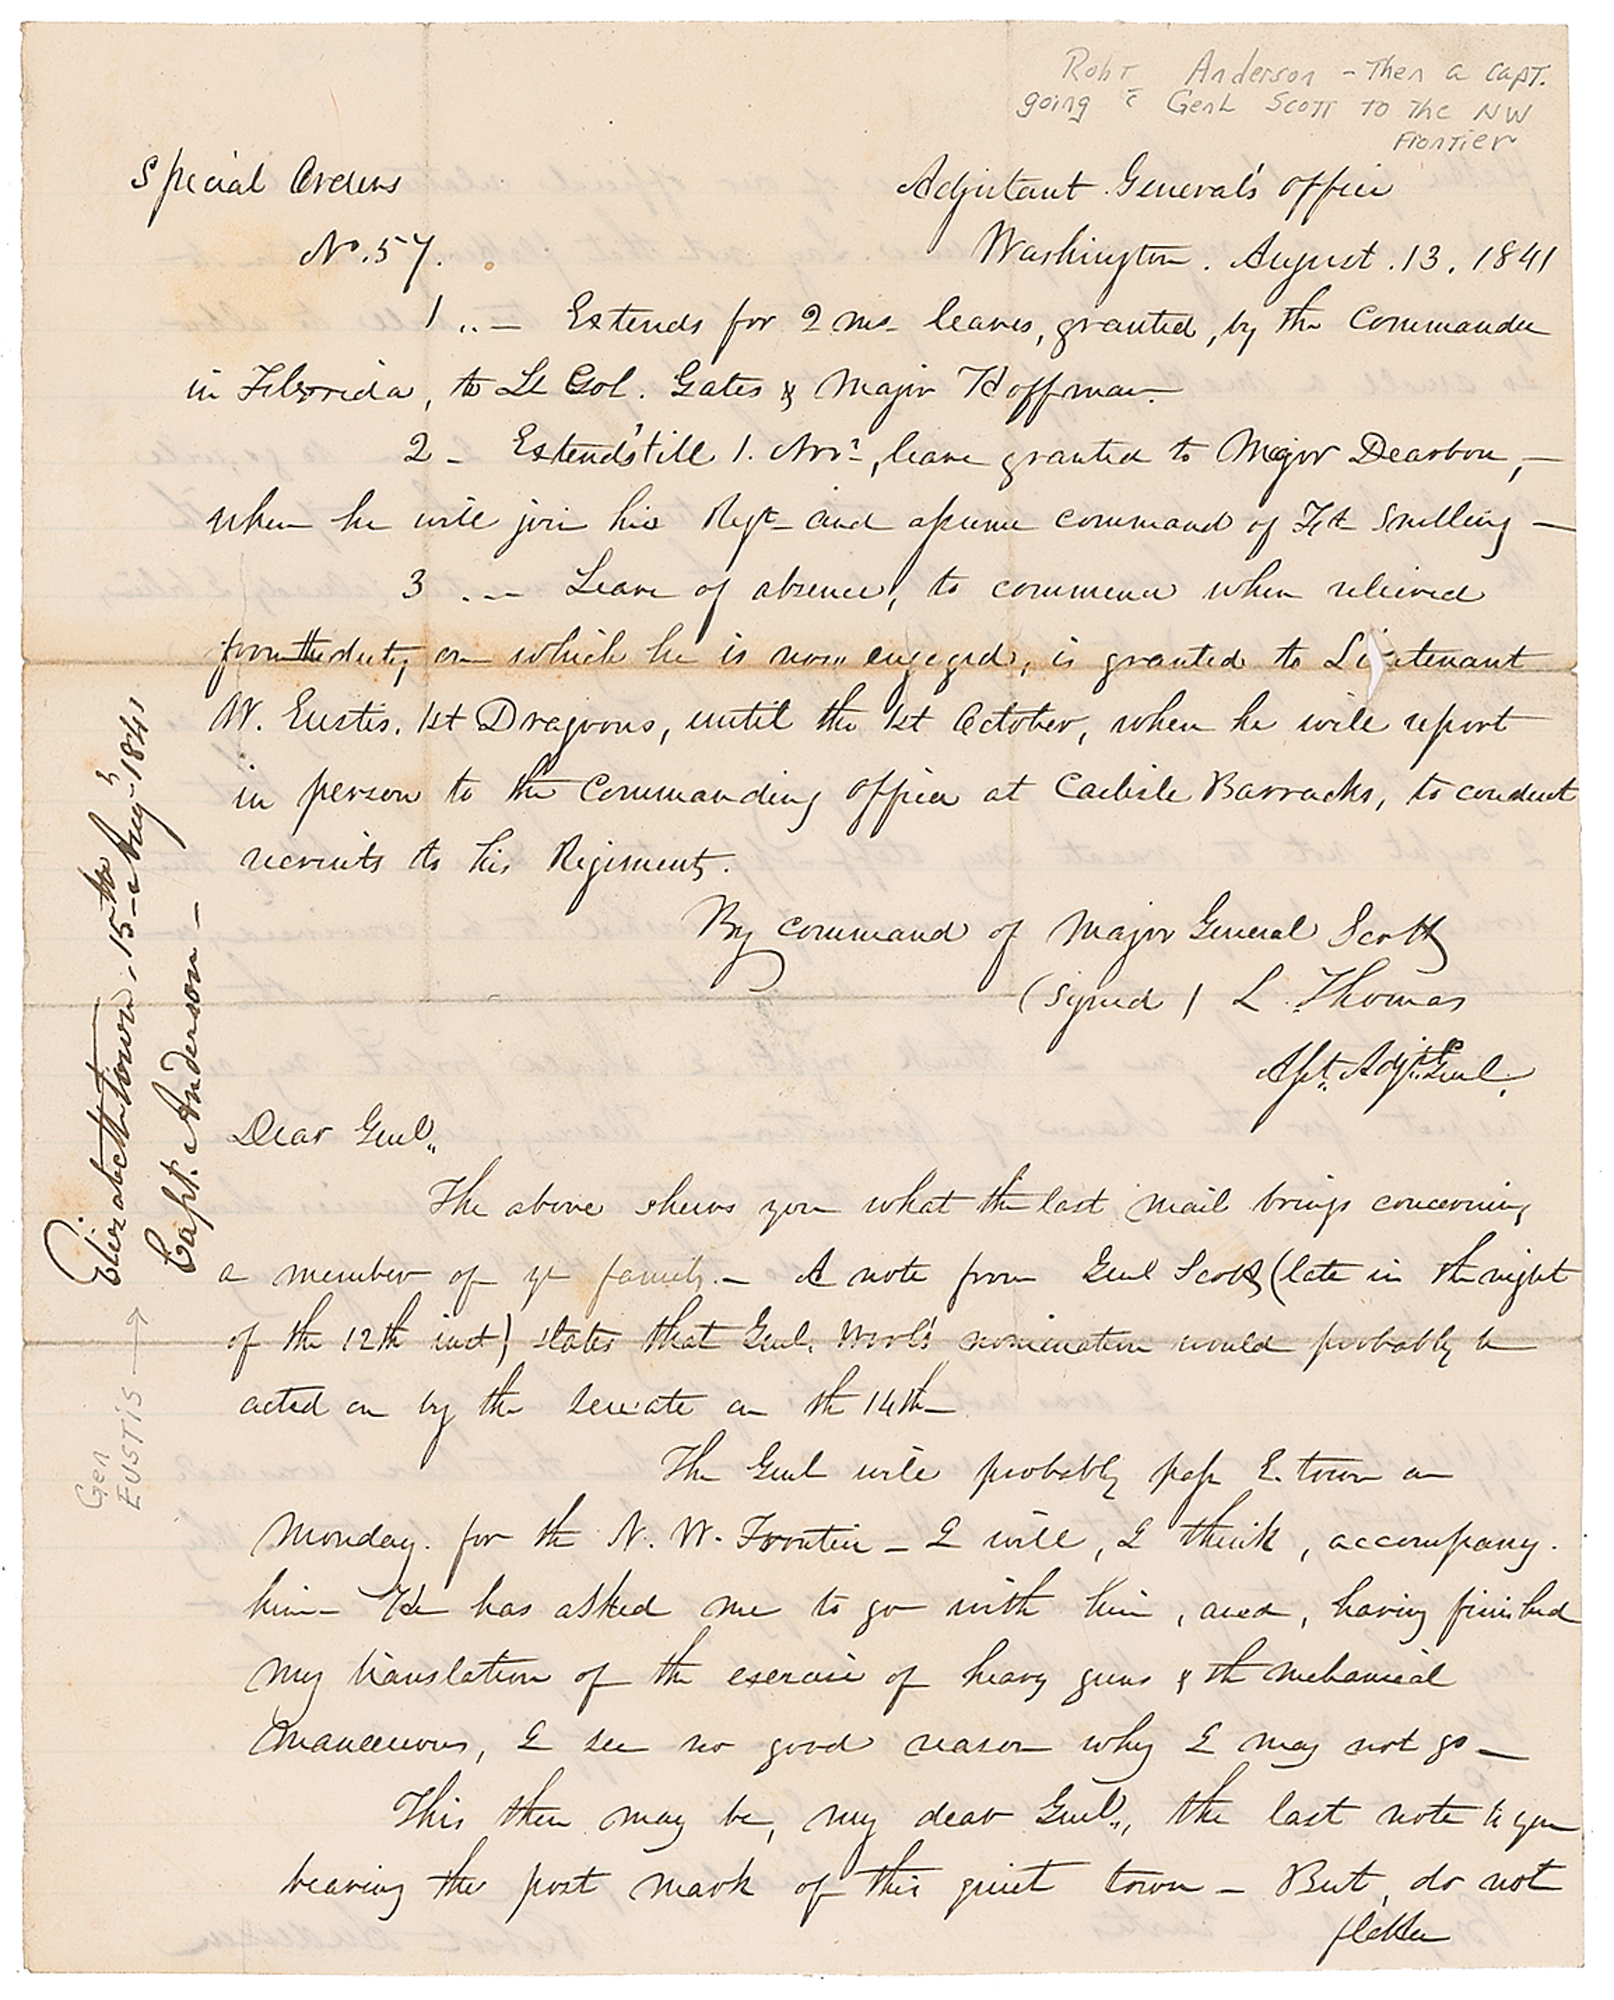 Robt Anderson - Then a capt.
going c̄ Genl Scott to the NW
Frontier
Special Orders
No. 57.
Adjutant General's Office
Washington. August. 13. 1841
1 .. — Extends for 2 ms leaves, granted, by the Commander
in Florida, to Lt Col. Gates & Major Hoffman.—
2 — Extends 'till 1. Novr, leave granted to Major Dearborn, —
when he will join his Regt and assume command of Ft Snelling —
3 .. — Leave of absence, to commence when relieved
from the duty on which he is now engaged, is granted to Lieutenant
W. Eustis. 1st Dragoons, until the 1st October, when he will report
in person to the Commanding Officer at Carlisle Barracks, to conduct
recruits to his Regiment.
By command of Major General Scott
(signed) L. Thomas
Asst. Adjt. Genl.
Dear Genl.
The above shews you what the last mail brings concerning
a member of yr family. — A note from Genl Scott (late in the night
of the 12th inst) states that Genl. Wool's nomination would probably be
acted on by the Senate on the 14th —
The Genl will probably pass E. town on
Monday. for the N. W. Frontier — I will, I think, accompany.
him — He has asked me to go with him, and, having finished
my translation of the exercise of heavy guns & the mechanical
manoeuvres, I see no good reason why I may not go —
This then may be, my dear Genl., the last note to you
bearing the post mark of this quiet town — But, do not
flatter
Elizabethtown, 15th Aug. 1841
Capt. Anderson —
Gen
EUSTIS →